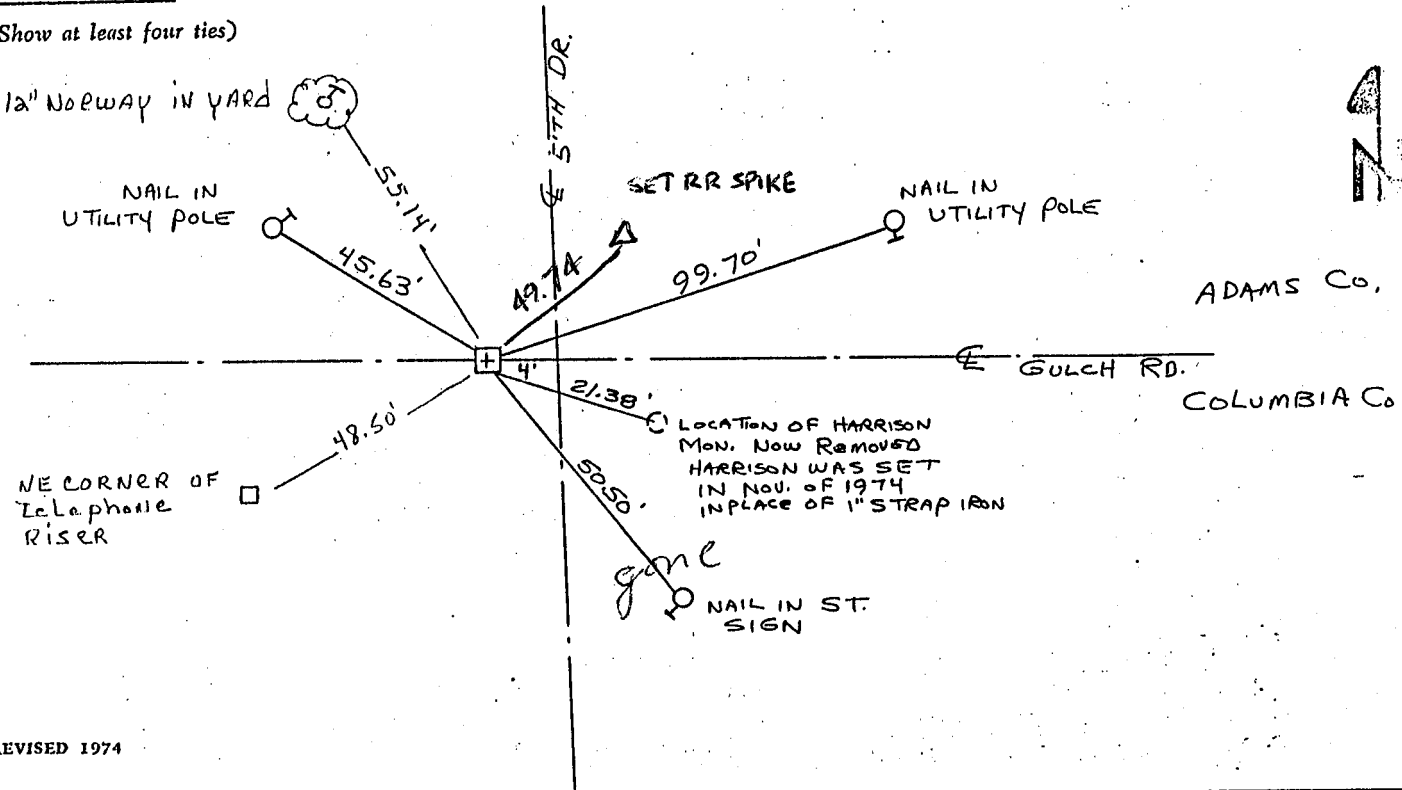 Show at least four ties)
12" NORWAY IN YARD
55.14'
NAIL IN
UTILITY POLE
45.63'
℄ 5'TH DR.
SET RR SPIKE
49.74
NAIL IN
UTILITY POLE
99.70'
N
ADAMS CO.
4'
℄ GULCH RD.
COLUMBIA CO
21.38'
LOCATION OF HARRISON
MON. NOW REMOVED
HARRISON WAS SET
IN NOV. OF 1974
INPLACE OF 1" STRAP IRON
48.50'
NE CORNER OF
Telephone
RISER
50.50'
gone
NAIL IN ST.
SIGN
EVISED 1974